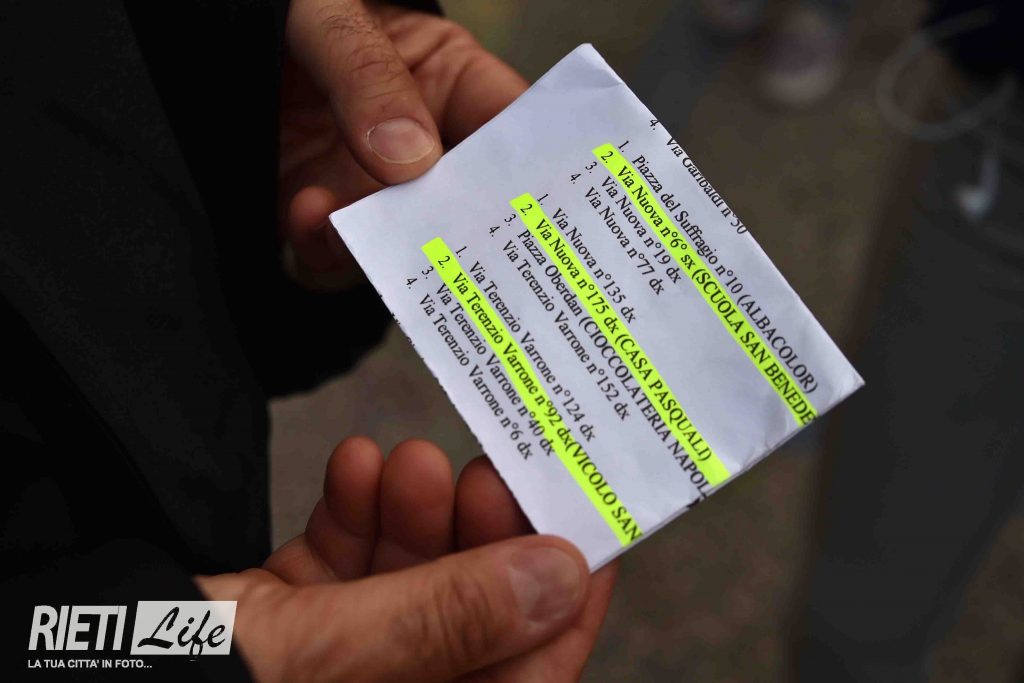 4. Via Garibaldi n°50
1. Piazza del Suffragio n°10 (ALBACOLOR)
2. Via Nuova n°6 sx (SCUOLA SAN BENEDE
3. Via Nuova n°19 dx
4. Via Nuova n°77 dx
1. Via Nuova n°135 dx
2. Via Nuova n°175 dx (CASA PASQUALI)
3. Piazza Oberdan (CIOCCOLATERIA NAPOL
4. Via Terenzio Varrone n°152 dx
1. Via Terenzio Varrone n°124 dx
2. Via Terenzio Varrone n°92 dx(VICOLO SAN
3. Via Terenzio Varrone n°40 dx
4. Via Terenzio Varrone n°6 dx
RIETI Life
LA TUA CITTA' IN FOTO...